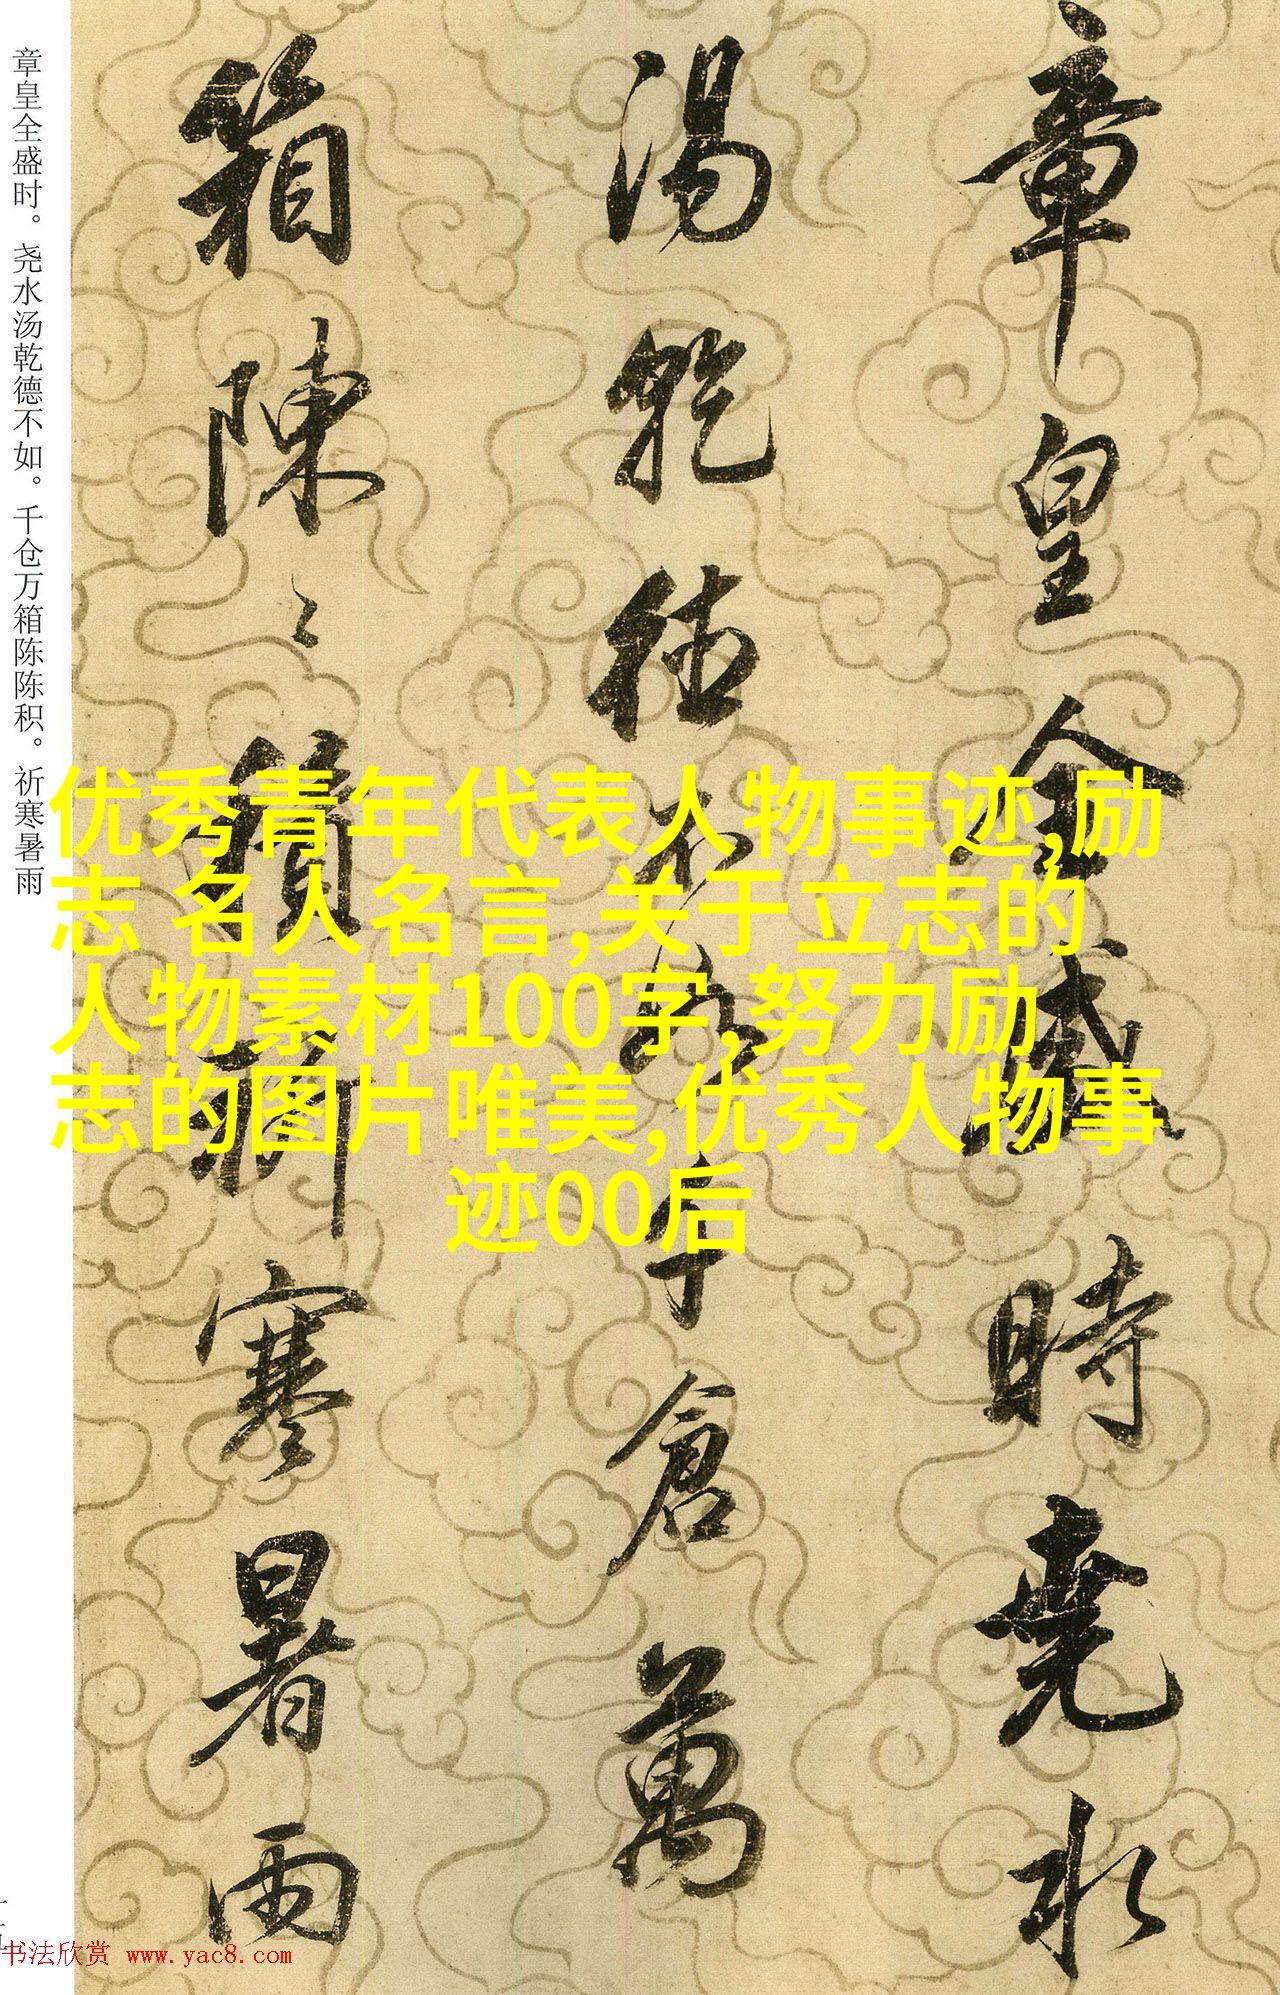 章皇全盛時堯水
湯乾德不如千倉萬
箱陳〻積祈寒暑雨
章皇全盛时。尧水汤乾德不如。千仓万箱陈陈积。祈寒暑雨
优秀青年代表人物事迹,励
志 名人名言,关于立志的
人物素材100字,努力励
志的图片唯美,优秀人物事
迹00后
书法欣赏 www.yac8.com